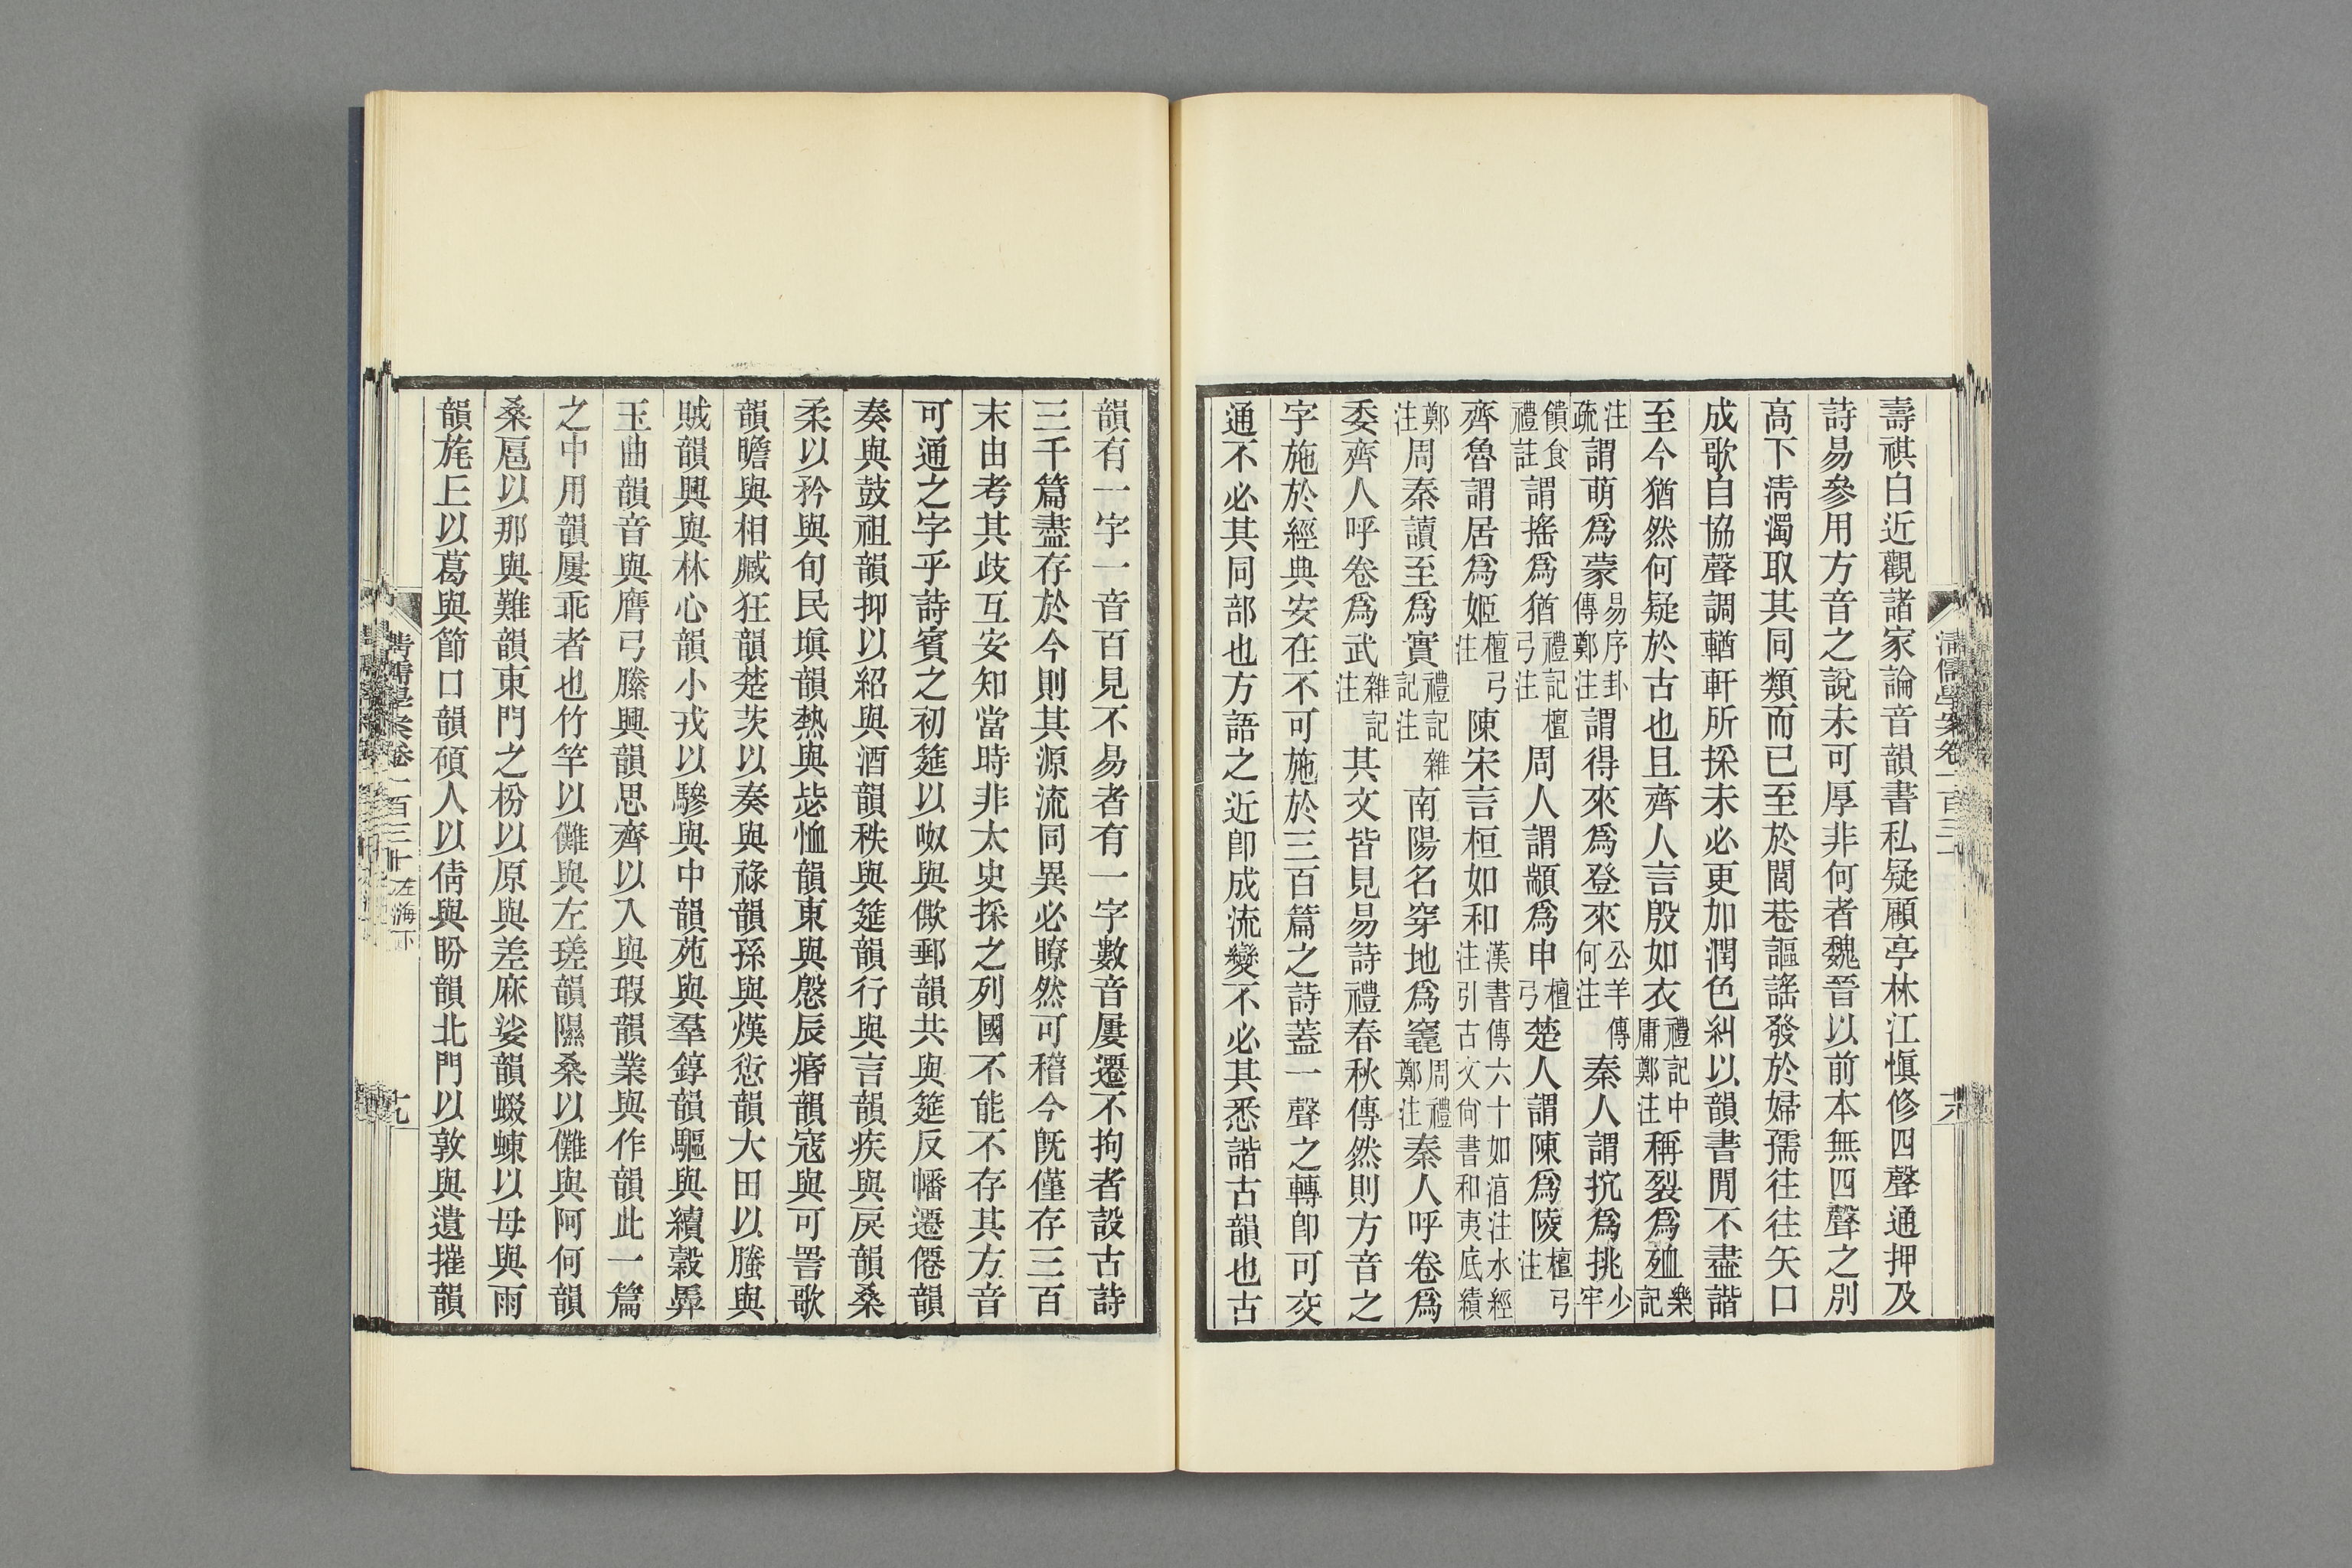 壽祺白近觀諸家論音韻書私疑顧亭林江愼修四聲通押及
詩易參用方音之說未可厚非何者魏晉以前本無四聲之別
高下淸濁取其同類而已至於閭巷謳謠發於婦孺往往矢口
成歌自協聲調輶軒所採未必更加潤色糾以韻書閒不盡諧
至今猶然何疑於古也且齊人言殷如衣禮記中庸鄭注稱裂爲殈樂記
注疏謂萌爲蒙易序卦傳鄭注謂得來爲登來公羊傳何注秦人謂抗爲挑少牢
饋食禮註謂搖爲猶禮記檀弓注周人謂顓爲申檀弓楚人謂陳爲陵檀弓注
齊魯謂居爲姬檀弓注陳宋言桓如和漢書傳六十如湻注水經注引古文尙書和夷底績
鄭注周秦讀至爲實禮記雜記注南陽名穿地爲竁周禮鄭注秦人呼卷爲
委齊人呼卷爲武雜記注其文皆見易詩禮春秋傳然則方音之
字施於經典安在不可施於三百篇之詩蓋一聲之轉卽可交
通不必其同部也方語之近卽成流變不必其悉諧古韻也古
淸儒學案卷一百三十
韻有一字一音百見不易者有一字數音屢遷不拘者設古詩
三千篇盡存於今則其源流同異必瞭然可稽今旣僅存三百
末由考其歧互安知當時非太史採之列國不能不存其方音
可通之字乎詩賓之初筵以呶與僛郵韻共與筵反幡遷僊韻
奏與鼓祖韻抑以紹與酒韻秩與筵韻行與言韻疾與戾韻桑
柔以矜與旬民塡韻熱與毖恤韻東與慇辰瘠韻寇與可詈歌
韻瞻與相臧狂韻楚茨以奏與祿韻孫與熯愆韻大田以螣與
賊韻興與林心韻小戎以驂與中韻苑與羣錞韻驅與續轂馵
玉曲韻音與膺弓縢興韻思齊以入與瑕韻業與作韻此一篇
之中用韻屢乖者也竹竿以儺與左瑳韻隰桑以儺與阿何韻
桑扈以那與難韻東門之枌以原與差麻娑韻蝃蝀以母與雨
韻旄丘以葛與節口韻碩人以倩與盼韻北門以敦與遺摧韻
淸儒學案卷一百三十 左海下 十九